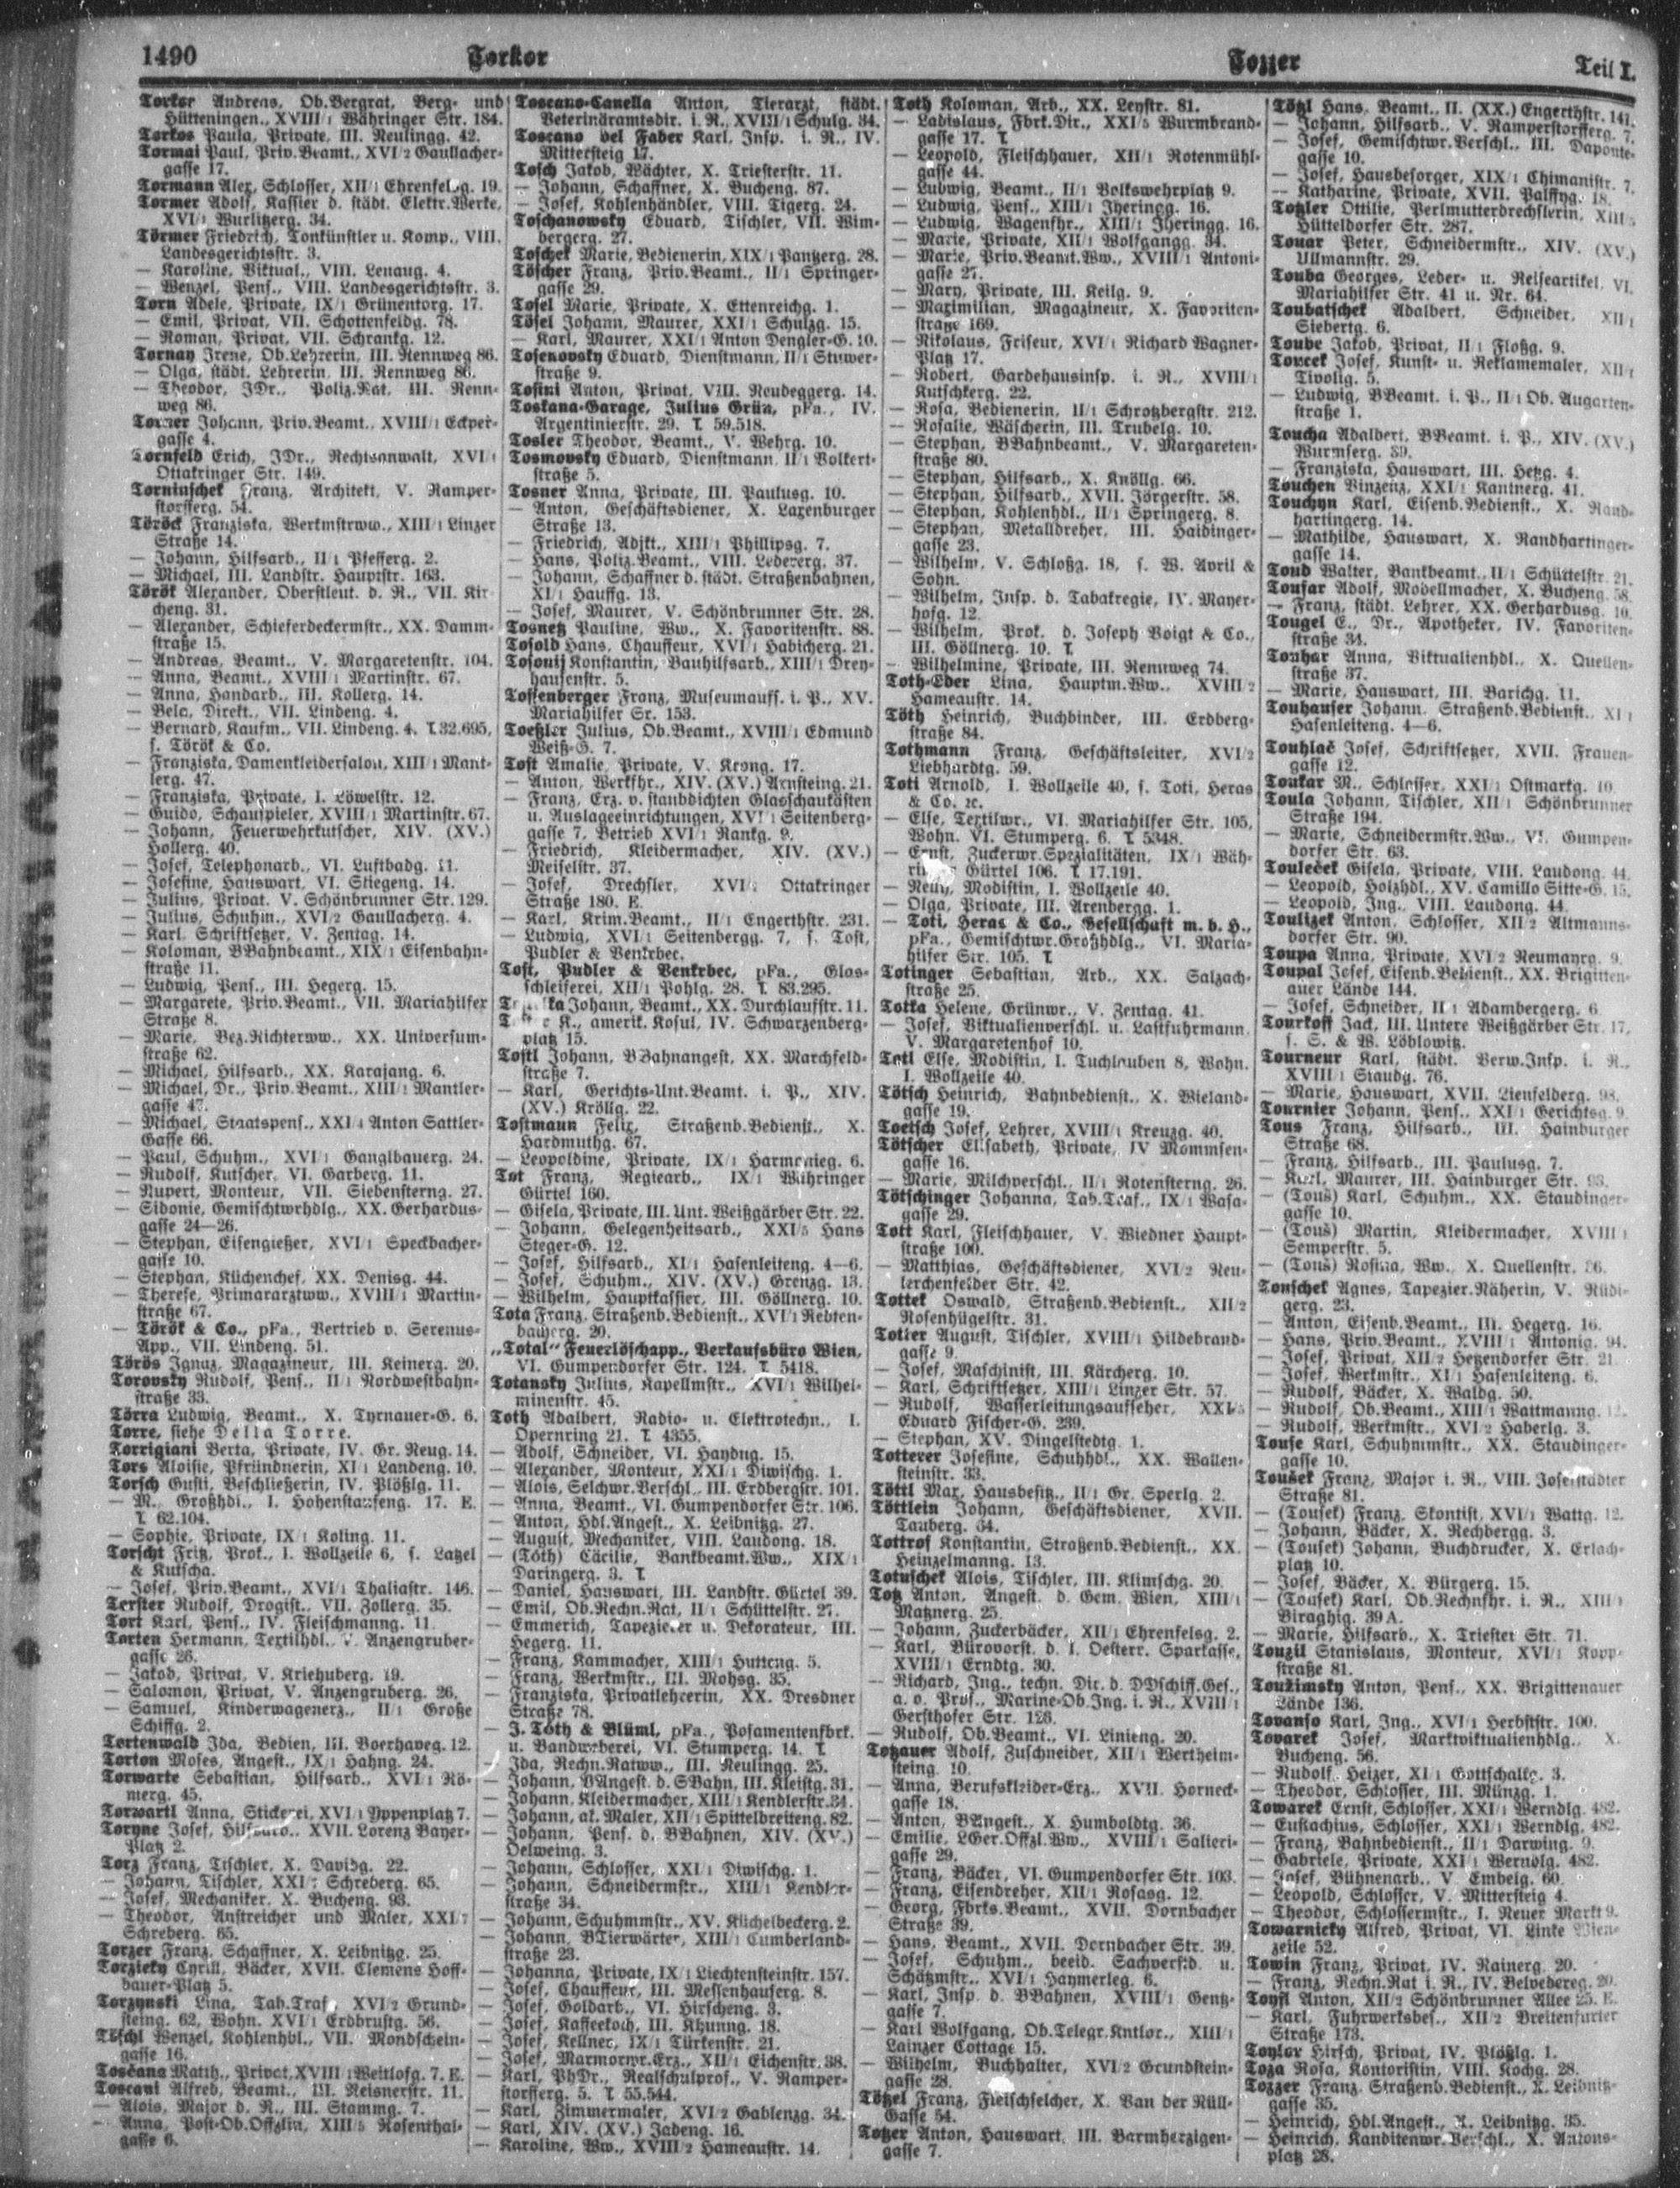 1490
Torkor
Tozzer
Teil I.
Torkor Andreas, Ob.Bergrat, Berg- und
Hütteningen., XVIII/1 Währinger Str. 184.
Torkos Paula, Private, III. Reulingg. 42.
Tormai Paul, Priv.Beamt., XVI/2 Gaullacher-
gasse 17.
Tormann Alex, Schlosser, XII/1 19.
Tormer Adolf, Kassier d. städt. Elektr.Werke,
XVI/1 Wurlitzerg. 34.
Törmer Friedrich, Tonkünstler u. Komp., VIII.
Landesgerichtsstr. 3.
— Karoline, Viktual., VIII. Lenaug. 4.
— Wenzel, Pens., VIII. Landesgerichtsstr. 3.
Torn Adele, Private, IX/1 Grünentorg. 17.
— Emil, Privat, VII. Schottenfeldg. 78.
— Roman, Privat, VII. Schrankg. 12.
Tornay Irene, Ob.Lehrerin, III. Rennweg 86.
— Olga, städt. Lehrerin, III. Rennweg 86.
— Theodor, JDr., Poliz.Rat, III. Renn-
weg 86.
Torner Johann, Priv.Beamt., XVIII/1 Eckper-
gasse 4.
Tornfeld Erich, JDr., Rechtsanwalt, XVI/1
Ottakringer Str. 149.
Torninschek Franz, Architekt, V. Ramper-
storfferg. 54.
Töröck Franziska, Werkmstrww., XIII/1 Linzer
Straße 14.
— Johann, Hilfsarb., II/1 Pfefferg. 2.
— Michael, III. Landstr. Hauptstr. 163.
Török Alexander, Oberstleut. d. R., VII. Kir-
cheng. 31.
— Alexander, Schieferdeckermstr., XX. Damm-
straße 15.
— Andreas, Beamt., V. Margaretenstr. 104.
— Anna, Beamt., XVIII/1 Martinstr. 67.
— Anna, Handarb., III. Kollerg. 14.
— Bela, Direkt., VII. Lindeng. 4.
— Bernard, Kaufm., VII. Lindeng. 4. T. 32.695,
s. Török & Co.
— Franziska, Damenkleidersalon, XIII/1 Mant-
lerg. 47.
— Franziska, Private, I. Löwelstr. 12.
— Guido, Schauspieler, XVIII/1 Martinstr. 67.
— Johann, Feuerwehrkutscher, XIV. (XV.)
Hollerg. 40.
— Josef, Telephonarb., VI. Luftbadg. 11.
— Josefine, Hauswart, VI. Stiegeng. 14.
— Julius, Privat, V. Schönbrunner Str. 129.
— Julius, Schuhm., XVI/2 Gaullacherg. 4.
— Karl, Schriftsetzer, V. Zentag. 14.
— Koloman, BBahnbeamt., XIX/1 Eisenbahn-
straße 11.
— Ludwig, Pens., III. Hegerg. 15.
— Margarete, Priv.Beamt., VII. Mariahilfer
Straße 8.
— Marie, Bez.Richterww., XX. Universum-
straße 62.
— Michael, Hilfsarb., XX. Karajang. 6.
— Michael, Dr., Priv.Beamt., XIII/1 Mantler-
gasse 47.
— Michael, Staatspens., XXI/4 Anton Sattler-
Gasse 66.
— Paul, Schuhm., XVI/1 Ganglbauerg. 24.
— Rudolf, Kutscher, VI. Garberg. 11.
— Rupert, Monteur, VII. Siebensterng. 27.
— Sidonie, Gemischtwrhdlg., XX. Gerhardus-
gasse 24—26.
— Stephan, Eisengießer, XVI/1 Speckbacher-
gasse 10.
— Stephan, Küchenchef, XX. Denisg. 44.
— Therese, Primararztww., XVIII/1 Martin-
straße 67.
— Török & Co., pFa., Vertrieb v. Serenus-
App., VII. Lindeng. 51.
Törös Ignaz, Magazineur, III. Keinerg. 20.
Torovsky Rudolf, Pens., II/1 Nordwestbahn-
straße 33.
Törra Ludwig, Beamt., X. Tyrnauer-G. 6.
Torre, siehe Della Torre.
Torrigiani Berta, Private, IV. Gr. Neug. 14.
Tors Aloisie, Pfründnerin, XI/1 Landeng. 10.
Torsch Gusti, Beschließerin, IV. Plößlg. 11.
— M., Großhdl., I. Hohenstaufeng. 17. E.
T. 62.104.
— Sophie, Private, IX/1 Koling. 11.
Torscht Fritz, Prok., I. Wollzeile 6, s. Latzel
& Kutscha.
— Josef, Priv.Beamt., XVI/1 Thaliastr. 146.
Torster Rudolf, Drogist., VII. Zollerg. 35.
Tort Karl, Pens., IV. Fleischmanng. 11.
Torten Hermann, Textilhdl., V. Anzengruber-
gasse 26.
— Jakob, Privat, V. Kriehuberg. 19.
— Salomon, Privat, V. Anzengruberg. 26.
— Samuel, Kinderwagenerz., II/1 Große
Schiffg. 2.
Tortenwald Ida, Bedien, III. Boerhaveg. 12.
Torton Moses, Angest., IX/1 Hahng. 24.
Torwarte Sebastian, Hilfsarb., XVI/1 Rö-
merg. 45.
Torwartl Anna, Stickerei, XVI/1 Yppenplatz 7.
Toryne Josef, Hilfsarb., XVII. Lorenz Bayer-
Platz 2.
Torz Franz, Tischler, X. Davidg. 22.
— Johann, Tischler, XXI/7 Schreberg. 65.
— Josef, Mechaniker, X. Bucheng. 93.
— Theodor, Anstreicher und Maler, XXI/7
Schreberg. 65.
Torzer Franz, Schaffner, X. Leibnitzg. 25.
Torzicky Cyrill, Bäcker, XVII. Clemens Hoff-
bauer-Platz 5.
Torzynski Lina, Tab.Traf., XVI/2 Grund-
steing. 62, Wohn. XVI/1 Erdbrustg. 56.
Töschl Wenzel, Kohlenhdl., VII. Mondschein-
gasse 16.
Toscana Matth., Privat, XVIII/1 Weitlofg. 7. E.
Toscani Alfred, Beamt., III. Reisnerstr. 11.
— Alois, Major d. R., III. Stammg. 7.
— Anna, Post-Ob.Offzlin, XIII/5 Rosenthal-
gasse 6.
Toscano-Canella Anton, Tierarzt, städt.
Veterinäramtsdir. i. R., XVIII/1 Schulg. 34.
Toscano del Faber Karl, Insp. i. R., IV.
Mittersteig 17.
Tosch Jakob, Wächter, X. Triesterstr. 11.
— Johann, Schaffner, X. Bucheng. 87.
— Josef, Kohlenhändler, VIII. Tigerg. 24.
Toschanowsky Eduard, Tischler, VII. Wim-
bergerg. 27.
Toschek Marie, Bedienerin, XIX/1 Pantzerg. 28.
Töscher Franz, Priv.Beamt., II/1 Springer-
gasse 29.
Tosel Marie, Private, X. Ettenreichg. 1.
Tösel Johann, Maurer, XXI/1 Schulzg. 15.
— Karl, Maurer, XXI/1 Anton Dengler-G. 10.
Tosenovsky Eduard, Dienstmann, II/1 Stuwer-
straße 9.
Tosini Anton, Privat, VIII. Neudeggerg. 14.
Toskana-Garage, Julius Grün, pFa., IV.
Argentinierstr. 29. T. 59.518.
Tosler Theodor, Beamt., V. Wehrg. 10.
Tosmovsky Eduard, Dienstmann, II/1 Volkert-
straße 5.
Tosner Anna, Private, III. Paulusg. 10.
— Anton, Geschäftsdiener, X. Laxenburger
Straße 13.
— Friedrich, Adjkt., XIII/1 Phillipsg. 7.
— Hans, Poliz.Beamt., VIII. Ledererg. 37.
— Johann, Schaffner d. städt. Straßenbahnen,
XI/1 Hauffg. 13.
— Josef, Maurer, V. Schönbrunner Str. 28.
Tosnetz Pauline, Ww., X. Favoritenstr. 88.
Tosold Hans, Chauffeur, XVI/1 Habicherg. 21.
Tosonij Konstantin, Bauhilfsarb., XIII/1 Drey-
hausenstr. 5.
Tossenberger Franz, Museumauff. i. P., XV.
Mariahilfer Sr. 153.
Toeßler Julius, Ob.Beamt., XVIII/1 Edmund
Weiß-G. 7.
Tost Amalie, Private, V. Krong. 17.
— Anton, Werkfhr., XIV. (XV.) Arnsteing. 21.
— Franz, Erz. v. staubdichten Glasschaukästen
u. Auslageeinrichtungen, XVI/1 Seitenberg-
gasse 7, Betrieb XVI/1 Rankg. 9.
— Friedrich, Kleidermacher, XIV. (XV.)
Meiselstr. 37.
— Josef, Drechsler, XVI/2 Ottakringer
Straße 180. E.
— Karl, Krim.Beamt., II/1 Engerthstr. 231.
— Ludwig, XVI/1 Seitenbergg. 7, s. Tost,
Pudler & Venkrbec.
Tost, Pudler & Venkrbec, pFa., Glas-
schleiferei, XII/1 Pohlg. 28. T. 83.295.
Johann, Beamt., XX. Durchlaufstr. 11.
K., amerik. Kosul, IV. Schwarzenberg-
platz 15.
Tostl Johann, BBahnangest, XX. Marchfeld-
straße 7.
— Karl, Gerichts-Unt.Beamt. i. P., XIV.
(XV.) Kröllg. 22.
Tostmann Felix, Straßenb.Bedienst., X.
Hardmuthg. 67.
— Leopoldine, Private, IX/1 Harmonieg. 6.
Tot Franz, Regiearb., IX/1 Währinger
Gürtel 160.
— Gisela, Private, III. Unt. Weißgärber Str. 22.
— Johann, Gelegenheitsarb., XXI/5 Hans
Steger-G. 12.
— Josef, Hilfsarb., XI/1 Hasenleiteng. 4—6.
— Josef, Schuhm., XIV. (XV.) Grenzg. 13.
— Wilhelm, Hauptkassier, III. Göllnerg. 10.
Tota Franz, Straßenb.Bedienst., XVI/1 Rebten-
bauerg. 20.
„Total“ Feuerlöschapp., Verkaufsbüro Wien,
VI. Gumpendorfer Str. 124. T. 5418.
Totansky Julius, Kapellmstr., XVI/1 Wilhel-
minenstr. 45.
Toth Adalbert, Radio- u. Elektrotechn., I.
Opernring 21. T. 4355.
— Adolf, Schneider, VI. Haydng. 15.
— Alexander, Monteur, XXI/1 Diwischg. 1.
— Alois, Selchwr.Verschl., III. Erdbergstr. 101.
— Anna, Beamt., VI. Gumpendorfer Str. 106.
— Anton, Hdl.Angest., X. Leibnitzg. 27.
— August, Mechaniker, VIII. Laudong. 18.
— (Tóth) Cäcilie, Bankbeamt.Ww., XIX/1
Daringerg. 3. T.
— Daniel, Hauswart, III. Landstr. Gürtel 39.
— Emil, Ob.Rechn.Rat, II/1 Schüttelstr. 27.
— Emmerich, Tapezierer u. Dekorateur, III.
Hegerg. 11.
— Franz, Kammacher, XIII/1 Hutteng. 5.
— Franz, Werkmstr., III. Mohsg. 35.
— Franziska, Privatlehrerin, XX. Dresdner
Straße 78.
— J. Tóth & Blüml, pFa., Posamentenfbrk.
u. Bandweberei, VI. Stumperg. 14. T.
— Ida, Rechn.Ratww., III. Reulingg. 25.
— Johann, BAngest. d. SBahn, III. Kleistg. 31.
— Johann, Kleidermacher, XIII/1 Kendlerstr. 34.
— Johann, ak. Maler, XII/1 Spittelbreiteng. 82.
— Johann, Pens. d. BBahnen, XIV. (XV.)
Oelweing. 3.
— Johann, Schlosser, XXI/1 Diwischg. 1.
— Johann, Schneidermstr., XIII/1 Kendler-
straße 34.
— Johann, Schuhmmstr., XV. Küchelbeckerg. 2.
— Johann, BTierwärter, XIII/1 Cumberland-
straße 23.
— Johanna, Private, IX/1 Liechtensteinstr. 157.
— Josef, Chauffeur, III. Messenhauserg. 8.
— Josef, Goldarb., VI. Hirscheng. 3.
— Josef, Kaffeekoch, III. Khunng. 18.
— Josef, Kellner, IX/1 Türkenstr. 21.
— Josef, Marmorwr.Erz., XII/1 Eichenstr. 38.
— Karl, PhDr., Realschulprof., V. Ramper-
storfferg. 5. T. 55.544.
— Karl, Zimmermaler, XVI/2 Gablenzg. 34.
— Karl, XIV. (XV.) Jadeng. 16.
— Karoline, Ww., XVIII/2 Hameaustr. 14.
Toth Koloman, Arb., XX. Leystr. 81.
— Ladislaus, Fbrk.Dir., XXI/5 Wurmbrand-
gasse 17. T.
— Leopold, Fleischhauer, XII/1 Rotenmühl-
gasse 44.
— Ludwig, Beamt., II/1 Volkswehrplatz 9.
— Ludwig, Pens., XIII/1 Jheringg. 16.
— Ludwig, Wagenfhr., XIII/1 Jheringg. 16.
— Marie, Private, XII/1 Wolfgangg. 34.
— Marie, Priv.Beamt.Ww., XVIII/1 Antoni-
gasse 27.
— Mary, Private, III. Keilg. 9.
— Maximilian, Magazineur, X. Favoriten-
straße 169.
— Nikolaus, Friseur, XVI/1 Richard Wagner-
Platz 17.
— Robert, Gardehausinsp. i. R., XVIII/1
Kutschkerg. 22.
— Rosa, Bedienerin, II/1 Schrotzbergstr. 212.
— Rosalie, Wäscherin, III. Trubelg. 10.
— Stephan, BBahnbeamt., V. Margareten-
straße 80.
— Stephan, Hilfsarb., X. Knöllg. 66.
— Stephan, Hilfsarb., XVII. Jörgerstr. 58.
— Stephan, Kohlenhdl., II/1 Springerg. 8.
— Stephan, Metalldreher, III. Haidinger-
gasse 23.
— Wilhelm, V. Schloßg. 18, s. W. Avril &
Sohn.
— Wilhelm, Insp. d. Tabakregie, IV. Mayer-
hofg. 12.
— Wilhelm, Prok. d. Joseph Voigt & Co.,
III. Göllnerg. 10. T.
— Wilhelmine, Private, III. Rennweg 74.
Toth-Eder Lina, Hauptm.Ww., XVIII/2
Hameaustr. 14.
Töth Heinrich, Buchbinder, III. Erdberg-
straße 84.
Tothmann Franz, Geschäftsleiter, XVI/2
Liebhardtg. 59.
Toti Arnold, I. Wollzeile 40, s. Toti, Heras
& Co. ec.
— Else, Textilwr., VI. Mariahilfer Str. 105,
Wohn. VI. Stumperg. 6. T. 5348.
— Ernst, Zuckerwr.Spezialitäten, IX/1 Wäh-
Gürtel 106. T. 17.191.
— Modistin, I. Wollzeile 40.
— Olga, Private, III. Arenbergg. 1.
— Toti, Heras & Co., Gesellschaft m. b. H.,
pFa., Gemischtwr.Großhdlg., VI. Maria-
hilfer Str. 105. T.
Totinger Sebastian, Arb., XX. Salzach-
straße 25.
Totka Helene, Grünwr., V. Zentag. 41.
— Josef, Viktualienverschl. u. Lastfuhrmann,
V. Margaretenhof 10.
Totl Else, Modistin, I. Tuchlauben 8, Wohn.
I. Wollzeile 40.
Tötsch Heinrich, Bahnbedienst., X. Wieland-
gasse 19.
Toetsch Josef, Lehrer, XVIII/1 Kreuzg. 40.
Tötscher Elisabeth, Private, IV Mommsen-
gasse 16.
— Marie, Milchverschl., II/1 Rotensterng. 26.
Tötschinger Johanna, Tab.Traf., IX/1 Wasa-
gasse 29.
Tott Karl, Fleischhauer, V. Wiedner Haupt-
straße 100.
— Matthias, Geschäftsdiener, XVI/2 Neu-
lerchenfelder Str. 42.
Tottek Oswald, Straßenb.Bedienst., XII/2
Rosenhügelstr. 31.
Totter August, Tischler, XVIII/1 Hildebrand-
gasse 9.
— Josef, Maschinist, III. Kärcherg. 10.
— Karl, Schriftsetzer, XIII/1 Linzer Str. 57.
— Rudolf, Wasserleitungsaufseher, XXI/5
Eduard Fischer-G. 239.
— Stephan, XV. Dingelstedtg. 1.
Totterer Josefine, Schuhhdl., XX. Wallen-
steinstr. 33.
Töttl Max, Hausbesitz., II/1 Gr. Sperlg. 2.
Töttlein Johann, Geschäftsdiener, XVII.
Tauberg. 64.
Tottrof Konstantin, Straßenb.Bedienst., XX.
Heinzelmanng. 13.
Totuschek Alois, Tischler, III. Klimschg. 20.
Totz Anton, Angest. d. Gem. Wien, XIII/1
Matznerg. 25.
— Johann, Zuckerbäcker, XII/1 Ehrenfelsg. 2.
— Karl, Bürovorst. d. I. Oesterr. Sparkasse,
XVIII/1 Erndtg. 30.
— Richard, Ing., techn. Dir. d. DDschiff.Ges.,
a. o. Prof., Marine-Ob.Ing. i. R., XVIII/1
Gersthofer Str. 126.
— Rudolf, Ob.Beamt., VI. Linieng. 20.
Totzauer Adolf, Zuschneider, XII/1 Wertheim-
steing. 10.
— Anna, Berufskleider-Erz., XVII. Horneck-
gasse 18.
— Anton, BAngest., X. Humboldtg. 36.
— Emilie, LGer.Offzl.Ww., XVIII/1 Salieri-
gasse 29.
— Franz, Bäcker, VI. Gumpendorfer Str. 103.
— Franz, Eisendreher, XII/1 Rosasg. 12.
— Georg, Fbrks.Beamt., XVII. Dornbacher
Straße 39.
— Hans, Beamt., XVII. Dornbacher Str. 39.
— Josef, Schuhm., beeid. Sachverstd. u.
Schätzmstr., XVI/1 Haymerleg. 6.
— Karl, Insp. d. BBahnen, XVIII/1 Gentz-
gasse 7.
— Karl Wolfgang, Ob.Telegr.Kntlor., XIII/1
Lainzer Cottage 15.
— Wilhelm, Buchhalter, XVI/2 Grundstein-
gasse 28.
Tötzel Franz, Fleischselcher, X. Van der Nüll-
Gasse 54.
Totzer Anton, Hauswart, III. Barmherzigen-
gasse 7.
Tötzl Hans, Beamt., II. (XX.) Engerthstr. 141.
— Johann, Hilfsarb., V. Ramperstorfferg. 7.
— Josef, Gemischtwr.Verschl., III. Daponte-
gasse 10.
— Josef, Hausbesorger, XIX/1 Chimanistr. 7.
— Katharine, Private, XVII. Palffyg. 18.
Totzler Ottilie, Perlmutterdrechslerin, XIII/5
Hütteldorfer Str. 287.
Touar Peter, Schneidermstr., XIV. (XV.)
Ullmannstr. 29.
Touba Georges, Leder- u. Reiseartikel, VI.
Mariahilfer Str. 41 u. Nr. 64.
Toubatschek Adalbert, Schneider, XII/1
Siebertg. 6.
Toube Jakob, Privat, II/1 Floßg. 9.
Toucek Josef, Kunst- u. Reklamemaler, XII/1
Tivolig. 5.
— Ludwig, BBeamt. i. P., II/1 Ob. Augarten-
straße 1.
Toucha Adalbert, BBeamt. i. P., XIV. (XV.)
Wurmserg. 39.
— Franziska, Hauswart, III. Hetzg. 4.
Touchen Vinzenz, XXI/1 Kantnerg. 41.
Touchyn Karl, Eisenb.Bedienst., X. Rand-
hartingerg. 14.
— Mathilde, Hauswart, X. Randhartinger-
gasse 14.
Toud Walter, Bankbeamt., II/1 Schüttelstr. 21.
Toufar Adolf, Modellmacher, X. Bucheng. 58.
— Franz, städt. Lehrer, XX. Gerhardusg. 10.
Tougel E., Dr., Apotheker, IV. Favoriten-
straße 34.
Touhar Anna, Viktualienhdl., X. Quellen-
straße 37.
— Marie, Hauswart, III. Barichg. 11.
Touhauser Johann, Straßenb.Bedienst., XI/1
Hasenleiteng. 4—6.
Touhlač Josef, Schriftsetzer, XVII. Frauen-
gasse 12.
Toukar M., Schlosser, XXI/1 Ostmarkg. 10.
Toula Johann, Tischler, XII/1 Schönbrunner
Straße 194.
— Marie, Schneidermstr.Ww., VI. Gumpen-
dorfer Str. 63.
Touleček Gisela, Private, VIII. Laudong. 44.
— Leopold, Holzhdl., XV. Camillo Sitte-G. 15.
— Leopold, Ing., VIII. Laudong. 44.
Toulizek Anton, Schlosser, XII/2 Altmanns-
dorfer Str. 90.
Toupa Anna, Private, XVI/2 Neumayrg. 9.
Toupal Josef, Eisenb.Bedienst., XX. Brigitten-
auer Lände 144.
— Josef, Schneider, II/1 Adambergerg. 6
Tourkoff Jack, III. Untere Weißgärber Str. 17,
s. S. & W. Löblowitz.
Tourneur Karl, städt. Verw.Insp. i. R.,
XVIII/1 Staudg. 76.
— Marie, Hauswart, XVII. Lienfelderg. 98.
Tournier Johann, Pens., XXI/1 Gerichtsg. 9.
Tous Franz, Hilfsarb., III. Hainburger
Straße 68.
— Franz, Hilfsarb., III. Paulusg. 7.
— Karl, Maurer, III. Hainburger Str. 93.
— (Touš) Karl, Schuhm., XX. Staudinger-
gasse 10.
— (Touš) Martin, Kleidermacher, XVIII/1
Semperstr. 5.
— (Touš) Rosina, Ww., X. Quellenstr. 86.
Touschek Agnes, Tapezier.Näherin, V. Rüdi-
gerg. 23.
— Anton, Eisenb.Beamt., III. Hegerg. 16.
— Hans, Priv.Beamt., XVIII/1 Antonig. 94.
— Josef, Privat, XII/2 Hetzendorfer Str. 21.
— Josef, Werkmstr., XI/1 Hasenleiteng. 6.
— Rudolf, Bäcker, X. Waldg. 50.
— Rudolf, Ob.Beamt., XIII/1 Wattmanng. 12.
— Rudolf, Werkmstr., XVI/2 Haberlg. 3.
Touse Karl, Schuhmmstr., XX. Staudinger-
gasse 10.
Toušek Franz, Major i. R., VIII. Josefstädter
Straße 81.
— (Tousek) Franz, Skontist, XVI/1 Wattg. 12.
— Johann, Bäcker, X. Rechbergg. 3.
— (Tousek) Johann, Buchdrucker, X. Erlach-
platz 10.
— Josef, Bäcker, X. Bürgerg. 15.
— (Tousek) Karl, Ob.Rechnfhr. i. R., XIII/1
Biraghig. 39 A.
— Marie, Hilfsarb., X. Triester Str. 71.
Touzil Stanislaus, Monteur, XVI/1 Kopp-
straße 81.
Toužimsky Anton, Pens., XX. Brigittenauer
Lände 136.
Tovanso Karl, Ing., XVI/1 Herbststr. 100.
Tovarek Josef, Marktviktualienhdlg., X.
Bucheng. 56.
— Rudolf, Heizer, XI/1 Gottschalkg. 3.
— Theodor, Schlosser, III. Münzg. 1.
Towarek Ernst, Schlosser, XXI/1 Werndlg. 482.
— Eustachius, Schlosser, XXI/1 Werndlg. 482.
— Franz, Bahnbedienst., II/1 Darwing. 9.
— Gabriele, Private, XXI/1 Werndlg. 482.
— Josef, Bühnenarb., V. Embelg. 60.
— Leopold, Schlosser, V. Mittersteig 4.
— Theodor, Schlossermstr., I. Neuer Markt 9.
Towarnicky Alfred, Privat, VI. Linke Wien-
zeile 52.
Towin Franz, Privat, IV. Rainerg. 20.
— Franz, Rechn.Rat i. R., IV. Belvedereg. 20.
Toyfl Anton, XII/2 Schönbrunner Allee 25. E.
— Karl, Fuhrwerksbes., XII/2 Breitenfurter
Straße 173.
Toylor Hirsch, Privat, IV. Plößlg. 1.
Toza Rosa, Kontoristin, VIII. Kochg. 28.
Tozzer Franz, Straßenb.Bedienst., X. Leibnitz-
gasse 35.
— Heinrich, Hdl.Angest., X. Leibnitzg. 35.
— Heinrich, Kanditenwr.Verschl., X. Antons-
platz 28.